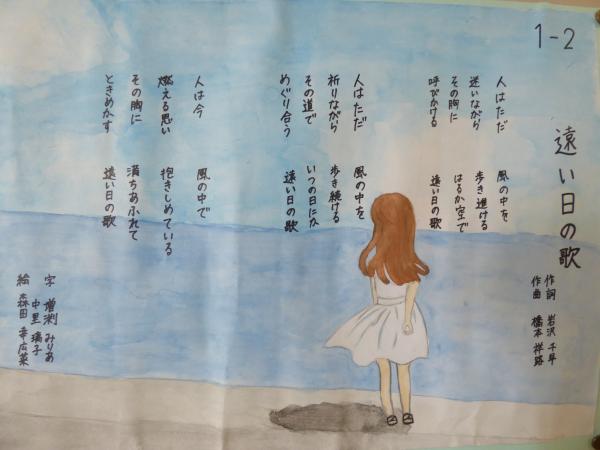 1-2
遠い日の歌
作詞 岩沢 千早
作曲 橋本 祥路
人はただ 風の中を
迷いながら 歩き続ける
その胸に はるか空で
呼びかける 遠い日の歌
人はただ 風の中を
祈りながら 歩き続ける
その道で いつの日にか
めぐり合う 遠い日の歌
人は今 風の中で
燃える思い 抱きしめている
その胸に 満ちあふれて
ときめかす 遠い日の歌
字 増渕 みりあ
中里 璃子
絵 森田 幸広菜